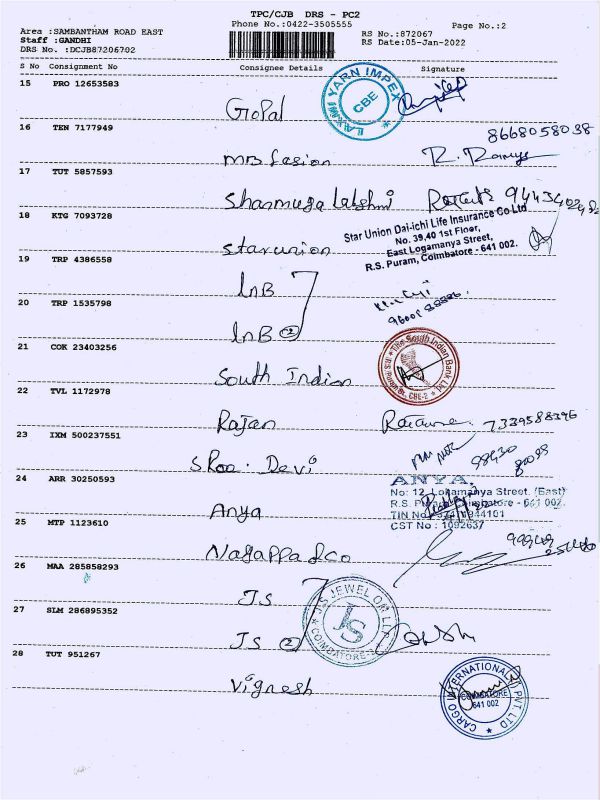 TPC/CJB DRS - PC2
Phone No.:0422-3505555
Page No.:2
Area :SAMBANTHAM ROAD EAST
Staff :GANDHI
DRS No. :DCJB87206702
RS No.:872067
RS Date:05-Jan-2022
S No Consignment No Consignee Details Signature
15 PRO 12653583
Gopal
LAXMI YARN IMPEX
CBE
16 TEN 7177949
8668058038
MRB fasion R. Ramya
17 TUT 5857593
Shanmuga lakshmi
18 KTG 7093728
Star Union Dai-ichi Life Insurance Co Ltd
No. 39,40 1st Floor,
East Logamanya Street,
R.S. Puram, Coimbatore - 641 002.
Star union
19 TRP 4386558
LnB
20 TRP 1535798
LnB 2
21 COK 23403256
The South Indian Bank Ltd
CBE-2
South Indian
22 TVL 1172978
Rajan 7339588396
23 IXM 500237551
S Roa. Devi
24 ARR 30250593
ANYA
No: 12, Logamanya Street, (East)
R.S. Puram, Coimbatore - 641 002.
TIN No
CST No : 1092637
Anya
25 MTP 1123610
Nagappa & co
26 MAA 285858293
JS
27 SLM 286895352
JS
COIMBATORE
JS 2
28 TUT 951267
Vignesh
CARGO INTERNATIONAL PVT. LTD
COIMBATORE
641 002